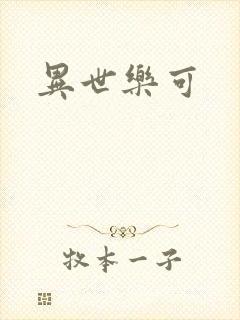 異世樂可
牧本一子